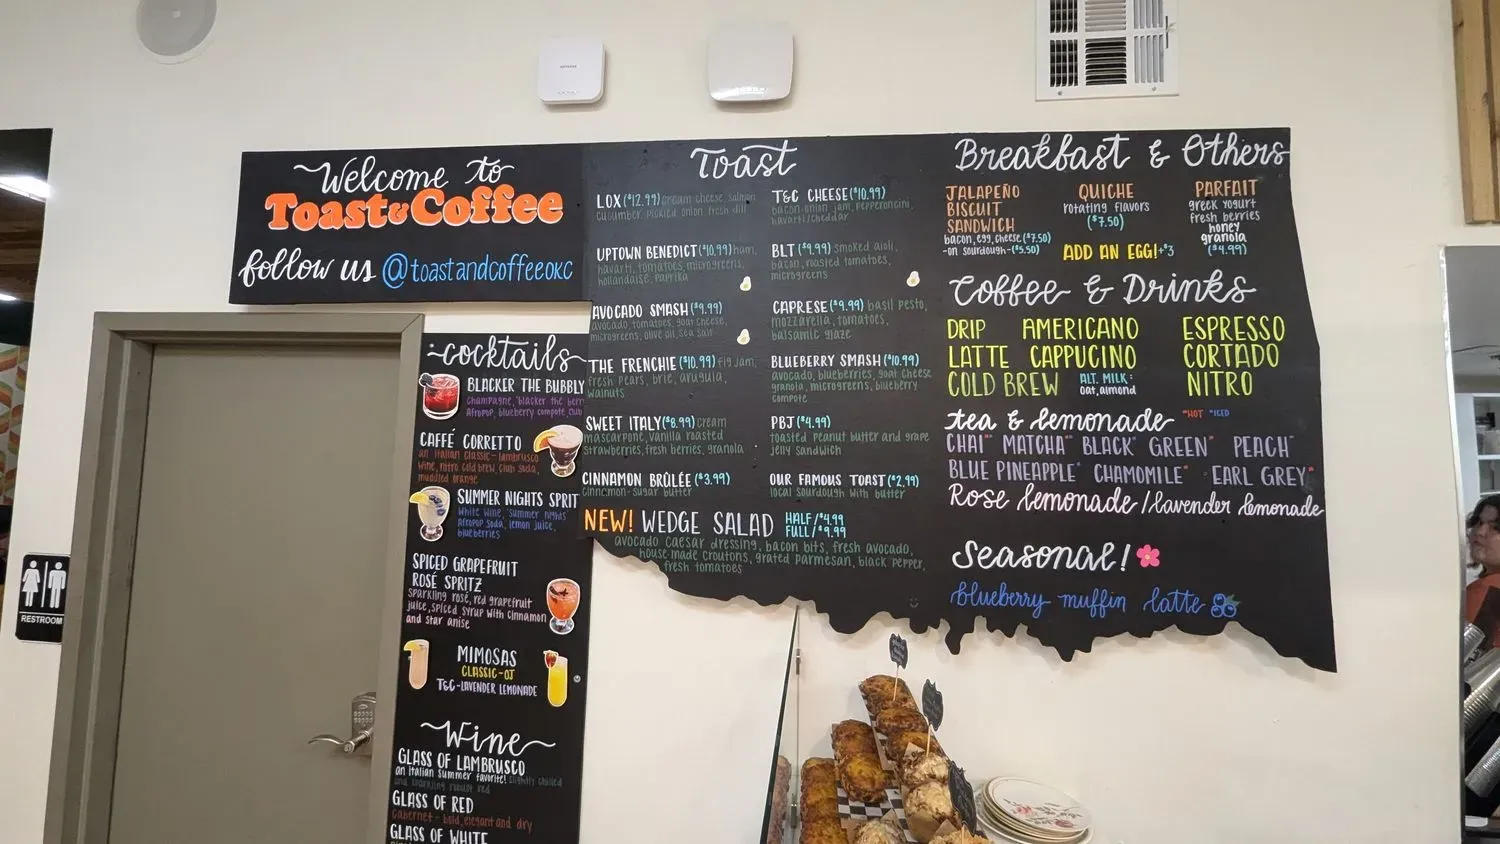 Welcome to
Toast & Coffee
follow us @toastandcoffeeokc
RESTROOM
cocktails
BLACKER THE BUBBLY
champagne, blacker the berr
Afropop, blueberry compote, club
CAFFÉ CORRETTO
an italian classic - lambrusco
wine, nitro cold brew, club soda,
muddled orange
SUMMER NIGHTS SPRIT
white wine, summer nights
Afropop soda, lemon juice,
blueberries
SPICED GRAPEFRUIT
ROSÉ SPRITZ
sparkling rosé, red grapefruit
juice, spiced syrup with cinnamon
and star anise
MIMOSAS
CLASSIC-OJ
T&C-LAVENDER LEMONADE
Wine
GLASS OF LAMBRUSCO
an italian summer favorite! slightly chilled
and sparkling robust red
GLASS OF RED
cabernet - bold, elegant and dry
GLASS OF WHITE
Toast
LOX ($12.99) cream cheese, salmon,
cucumber, pickled onion, fresh dill
UPTOWN BENEDICT ($10.99) ham,
havarti, tomatoes, microgreens,
hollandaise, paprika
AVOCADO SMASH ($9.99)
avocado, tomatoes, goat cheese,
microgreens, olive oil, sea salt
THE FRENCHIE ($10.99) fig jam,
fresh pears, brie, arugula,
walnuts
SWEET ITALY ($8.99) cream
mascarpone, vanilla roasted
strawberries, fresh berries, granola
CINNAMON BRÛLÉE ($3.99)
cinnamon-sugar butter
T&C CHEESE ($10.99)
bacon onion jam, pepperoncini,
havarti/cheddar
BLT ($9.99) smoked aioli,
bacon, roasted tomatoes,
microgreens
CAPRESE ($9.99) basil pesto,
mozzarella, tomatoes,
balsamic glaze
BLUEBERRY SMASH ($10.99)
avocado, blueberries, goat cheese
granola, microgreens, blueberry
compote
PBJ ($4.99)
toasted peanut butter and grape
jelly sandwich
OUR FAMOUS TOAST ($2.99)
local sourdough with butter
NEW! WEDGE SALAD HALF/$4.99
FULL/$9.99
avocado caesar dressing, bacon bits, fresh avocado,
house made croutons, grated parmesan, black pepper,
fresh tomatoes
Breakfast & Others
JALAPEÑO
BISCUIT
SANDWICH
bacon, egg, cheese ($7.50)
-on sourdough- ($5.50)
QUICHE
rotating flavors
($7.50)
ADD AN EGG! +$3
PARFAIT
greek yogurt
fresh berries
honey
granola
($4.99)
Coffee & Drinks
DRIP AMERICANO ESPRESSO
LATTE CAPPUCINO CORTADO
COLD BREW ALT. MILK: NITRO
oat, almond
tea & lemonade *HOT *ICED
CHAI** MATCHA** BLACK* GREEN* PEACH*
BLUE PINEAPPLE* CHAMOMILE* EARL GREY*
Rose lemonade / lavender lemonade
Seasonal!
blueberry muffin latte